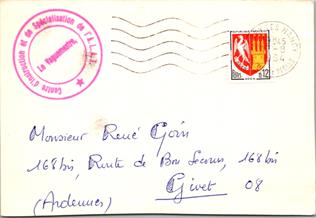 Centre d'Instruction et de Spécialisation de l'A.L.A.T.
Le Vaguemestre
0,12
Monsieur René Goin
168bis, Route de Bon Secours, 168bis
Givet 08
(Ardennes)